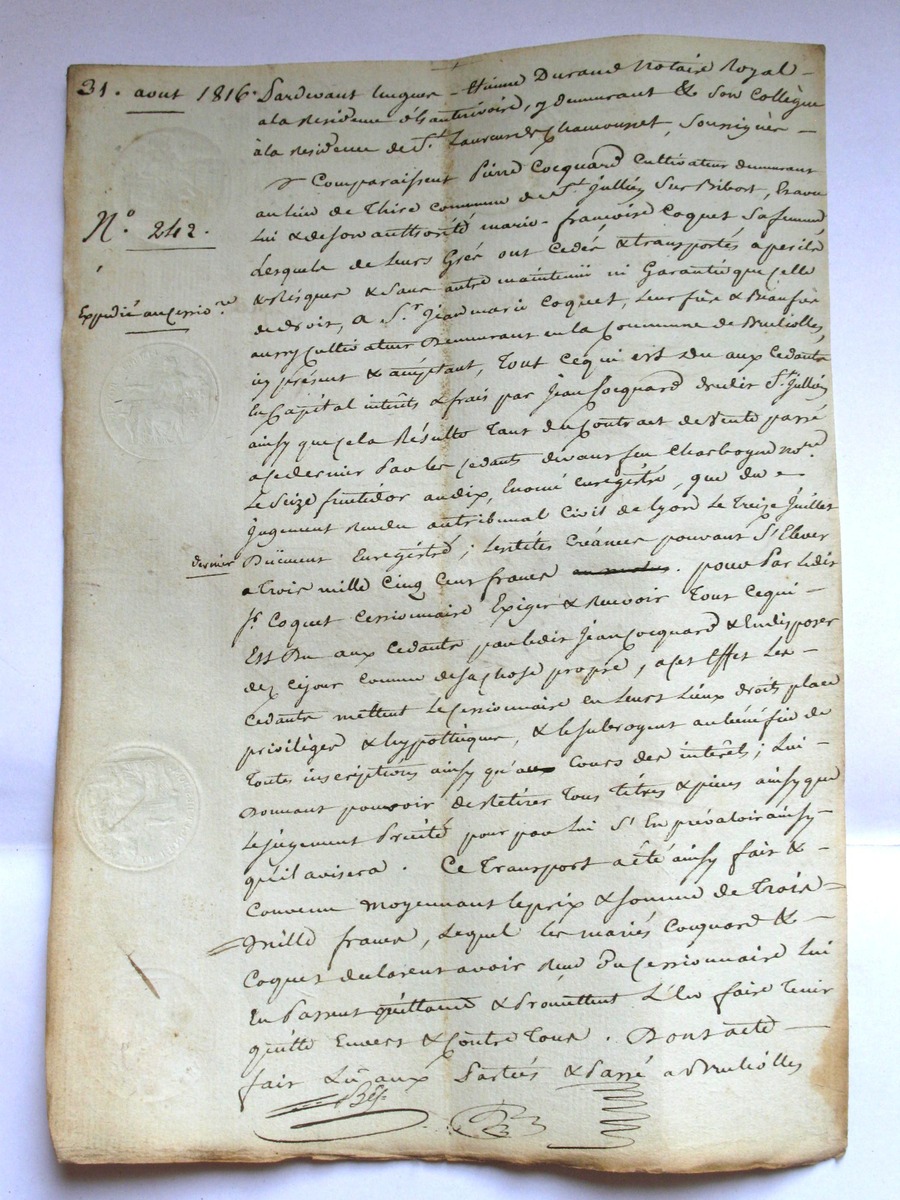 31. aout 1816.
N.° 242.
Expedié au cessio.re
dernier
Pardevant Etienne Durand Notaire Royal
a la Residence d'hauterivoire, y demeurant & son Collègue
à la residence de S.t Laurent de Chamousset, soussignés
Comparaissent Pierre Cocquard Cultivateur demeurant
au lieu de Thiré commune de S.t Jullien Sur Bibost, & avec
lui & de son authorité marie françoise Coquet Sa femme
Lesquels de leurs Grés ont cedés & transportés a perils
& Risques & sans autre maintenüe ni Garantie que celle
de droit, a S.r Jean marie Coquet, leur frère & Beaufrère
aussy Cultivateur Demeurant en la Commune de Brulliolles,
icy présent & acceptant, Tout ce qui est du aux Cedants
En Capital intérêts & frais par Jean Cocquard dudit S.t Jullien
ainsy que cela Résulte Tant du Contract de vente passé
a ce dernier Par les cedants devant feu Charbogne no.re
Le Seize fructidor an dix, Enregistré, que du
Jugement Rendu au tribunal Civil de Lyon Le Treize Juillet
Düement Enregistré; Lesdites Créances pouvant S'Elever
a Trois mille Cinq Cent francs . pour Par ledit
S.r Coquet Cessionnaire Exiger & Recevoir Tout ce qui
Est Du aux Cedants par ledit Jean Cocquard & En disposer
dez Cejour Comme de sa chose propre, a cet Effet Les
Cedants mettent Le cessionnaire en Leurs Lieux droits place
privilèges & hypothèques, & le subrogent au bénéfice de
Toutes inscriptions ainsy qu'au Cours des intérêts; Lui
Donnant pouvoir de Retirer Tous Titres & pièces ainsy que
Le jugement Précité pour par Lui S'En prévaloir ainsy
qu'il avisera . Ce Transport a été ainsy fait &
Convenu Moyennant le prix & somme de Trois
Mille francs, Lequel les mariés Cocquard &
Coquet declarent avoir Reçu Du cessionnaire Lui
En Passent quittance & Promettent L'En faire Tenir
quitte Envers & Contre Tous . Dont acte
fait Lû aux Parties & Passé a Brulliolles